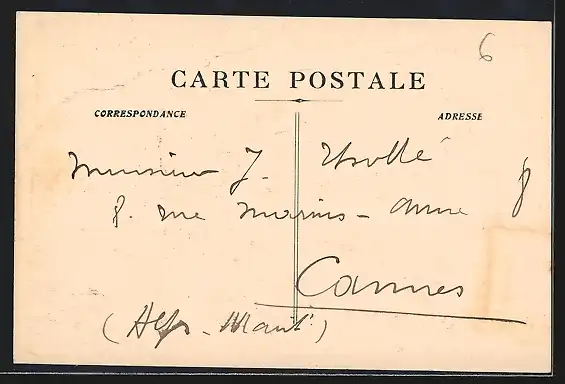 6
CARTE POSTALE
CORRESPONDANCE
ADRESSE
Monsieur J.
8. rue Marius - Aune 8
Cannes
(Alpes - Marit.)